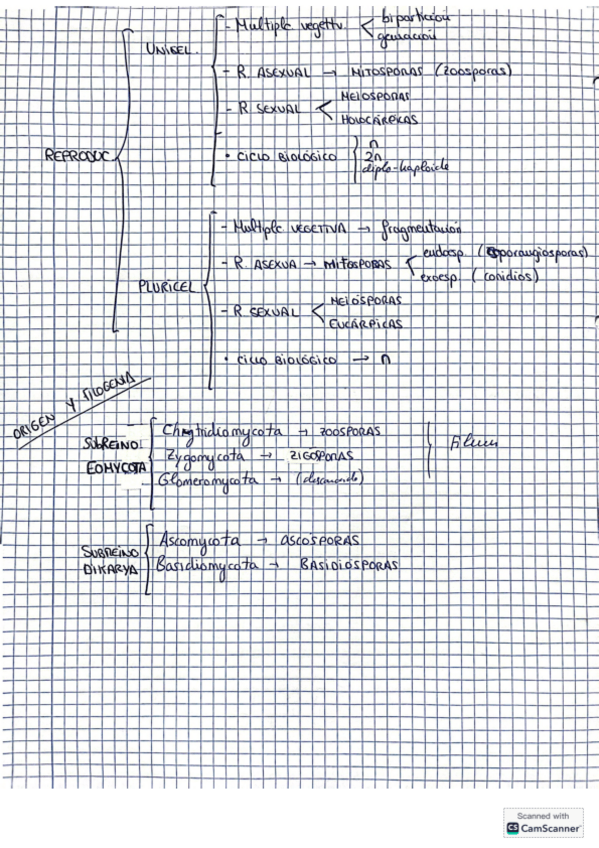 REPRODUC
UNICEL.
- Multiplc vegettv. bipartición
gemación
- R. ASEXUAL → MITOSPORAS (zoosporas)
- R SEXUAL MEIOSPORAS
HOLOCÁRPICAS
• CICLO BIOLÓGICO n
2n
diplo-haploide
PLURICEL
- Multiplc VEGETTVA → fragmentación
- R. ASEXUA → MITOSPORAS endosp. (Esporangiosporas)
exoesp. (conidios)
- R SEXUAL MEIÓSPORAS
EUCÁRPICAS
• CICLO BIOLÓGICO → n
ORIGEN Y FILOGENIA
SUBREINO EOMYCOTA
Chytridiomycota → ZOOSPORAS
Zygomycota → ZIGÓSPORAS
Glomeromycota → (desconocido)
Filum
SUBREINO DIKARYA
Ascomycota → ASCÓSPORAS
Basidiomycota → BASIDIÓSPORAS
Scanned with
CS CamScanner